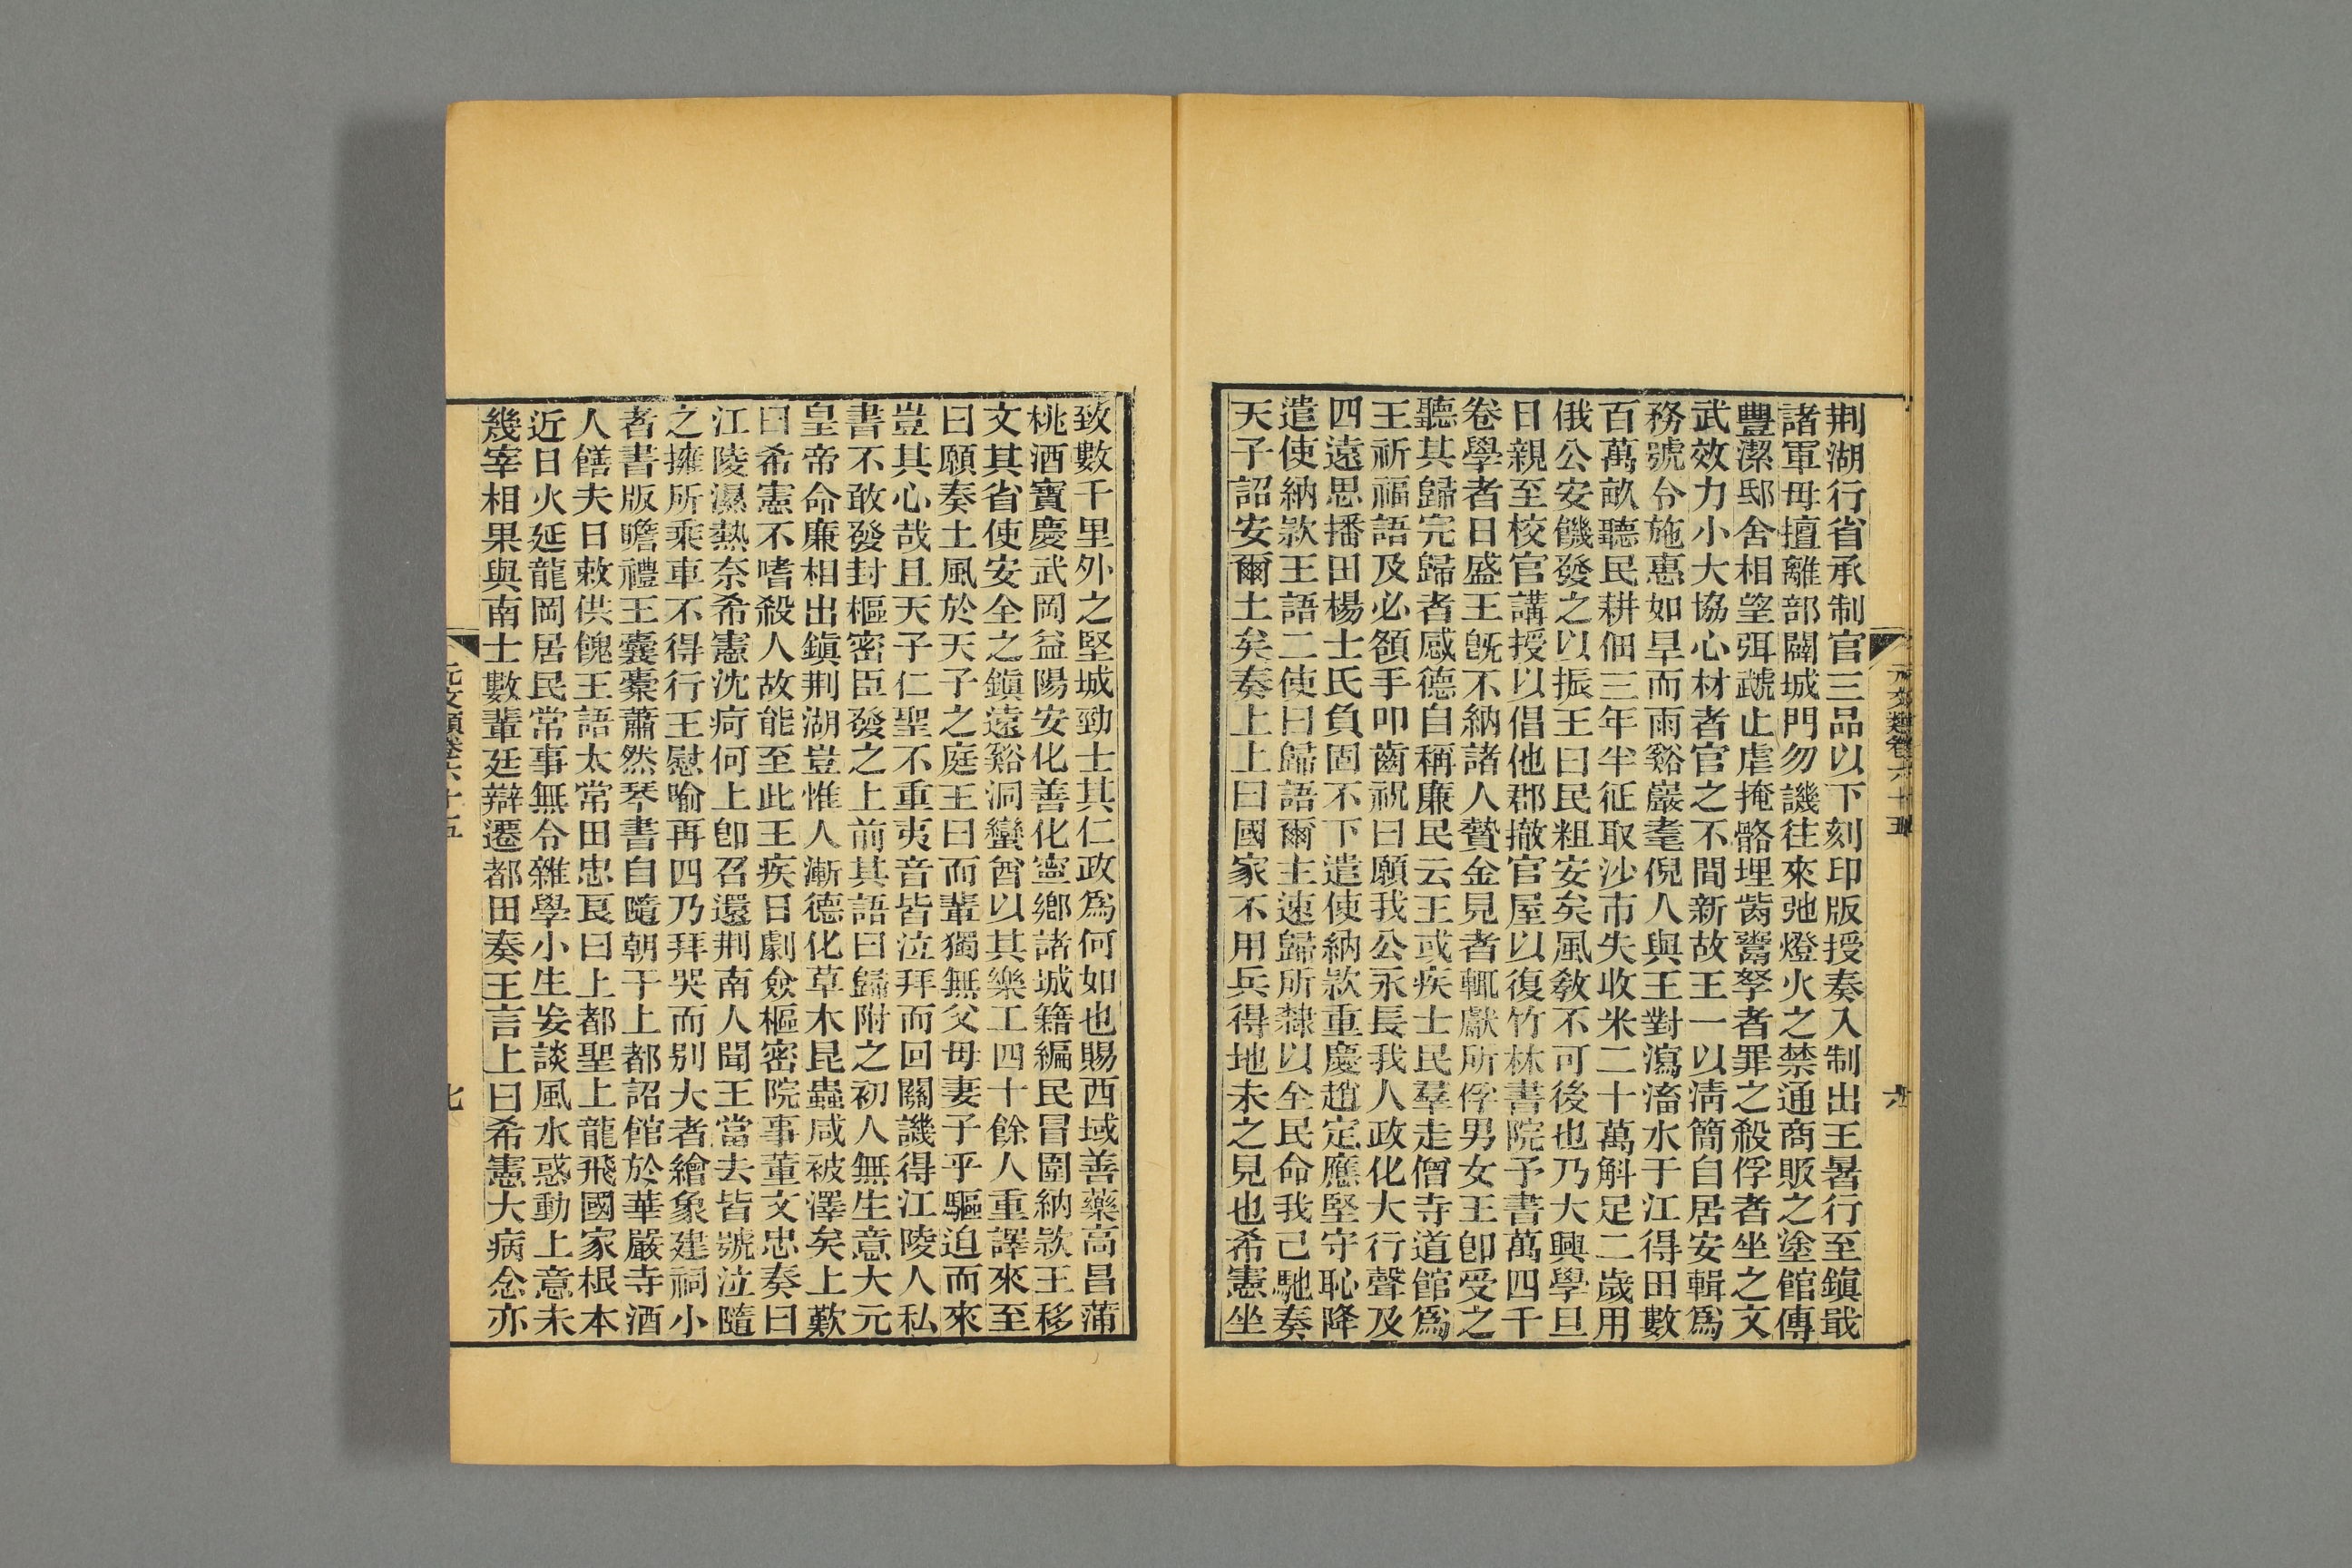 元文類卷六十五
六
荆湖行省承制官三品以下刻印版授奏入制出王暑行至鎭戢
諸軍毋擅離部闢城門勿譏往來弛燈火之禁通商販之塗館傳
豐潔邸舍相望弭虣止虐掩骼埋胔鬻孥者罪之殺俘者坐之文
武效力小大協心材者官之不間新故王一以淸簡自居安輯爲
務號令施惠如旱而雨谿巖耄倪人與王對瀉滀水于江得田數
百萬畝聽民耕佃三年半征取沙市失收米二十萬斛足二歲用
俄公安饑發之以振王曰民粗安矣風敎不可後也乃大興學旦
日親至校官講授以倡他郡撤官屋以復竹林書院予書萬四千
卷學者日盛王旣不納諸人贄金見者輒獻所俘男女王卽受之
聽其歸完歸者感德自稱廉民云王或疾士民羣走僧寺道館爲
王祈福語及必額手叩齒祝曰願我公永長我人政化大行聲及
四遠思播田楊士氏負固不下遣使納款重慶趙定應堅守恥降
遣使納款王語二使曰歸語爾主速歸所隸以全民命我己馳奏
天子詔安爾土矣奏上上曰國家不用兵得地未之見也希憲坐
致數千里外之堅城勁士其仁政爲何如也賜西域善藥高昌蒲
桃酒寶慶武岡益陽安化善化寧鄕諸城籍編民冒圍納款王移
文其省使安全之鎭遠谿洞蠻酋以其樂工四十餘人重譯來至
曰願奏土風於天子之庭王曰而輩獨無父母妻子乎驅迫而來
豈其心哉且天子仁聖不重夷音皆泣拜而回關譏得江陵人私
書不敢發封樞密臣發之上前其語曰歸附之初人無生意大元
皇帝命廉相出鎭荆湖豈惟人漸德化草木昆蟲咸被澤矣上歎
曰希憲不嗜殺人故能至此王疾日劇僉樞密院事董文忠奏曰
江陵濕熱奈希憲沈疴何上卽召還荆南人聞王當去皆號泣隨
之擁所乘車不得行王慰喻再四乃拜哭而别大者繪象建祠小
者書版瞻禮王囊橐蕭然琴書自隨朝于上都詔館於華嚴寺酒
人饍夫日敕供餽王語太常田忠良曰上都聖上龍飛國家根本
近日火延龍岡居民常事無令雜學小生妄談風水惑動上意未
幾宰相果與南士數輩廷辯遷都田奏王言上曰希憲大病念亦
元文類卷六十五
七